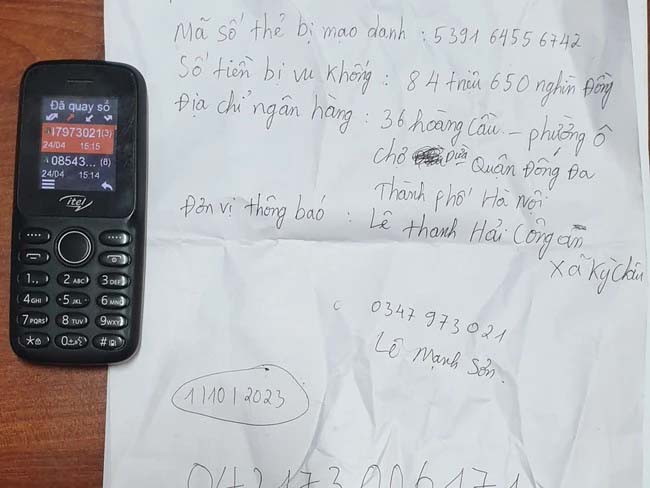 Đã quay số
47973021(3)
24/04 15:15
08543... (8)
24/04 15:14
itel
1.,
2 ABC
3 DEF
4 GHI
5 JKL
6 MNO
7 PQRS
8 TUV
9 WXYZ
*
0
#
Mã số thẻ bị mạo danh : 5391 6455 6742
Số tiền bị vu khống : 84 triệu 650 nghìn Đồng
Địa chỉ ngân hàng : 36 hoàng Cầu - phường Ô
chợ Dừa Quân Đống Đa
Thành phố Hà Nội
Đơn vị thông báo : Lê thanh Hải Công an
xã Kỳ Châu
0347 973 021
Lê Mạnh Sơn.
1/10/2023